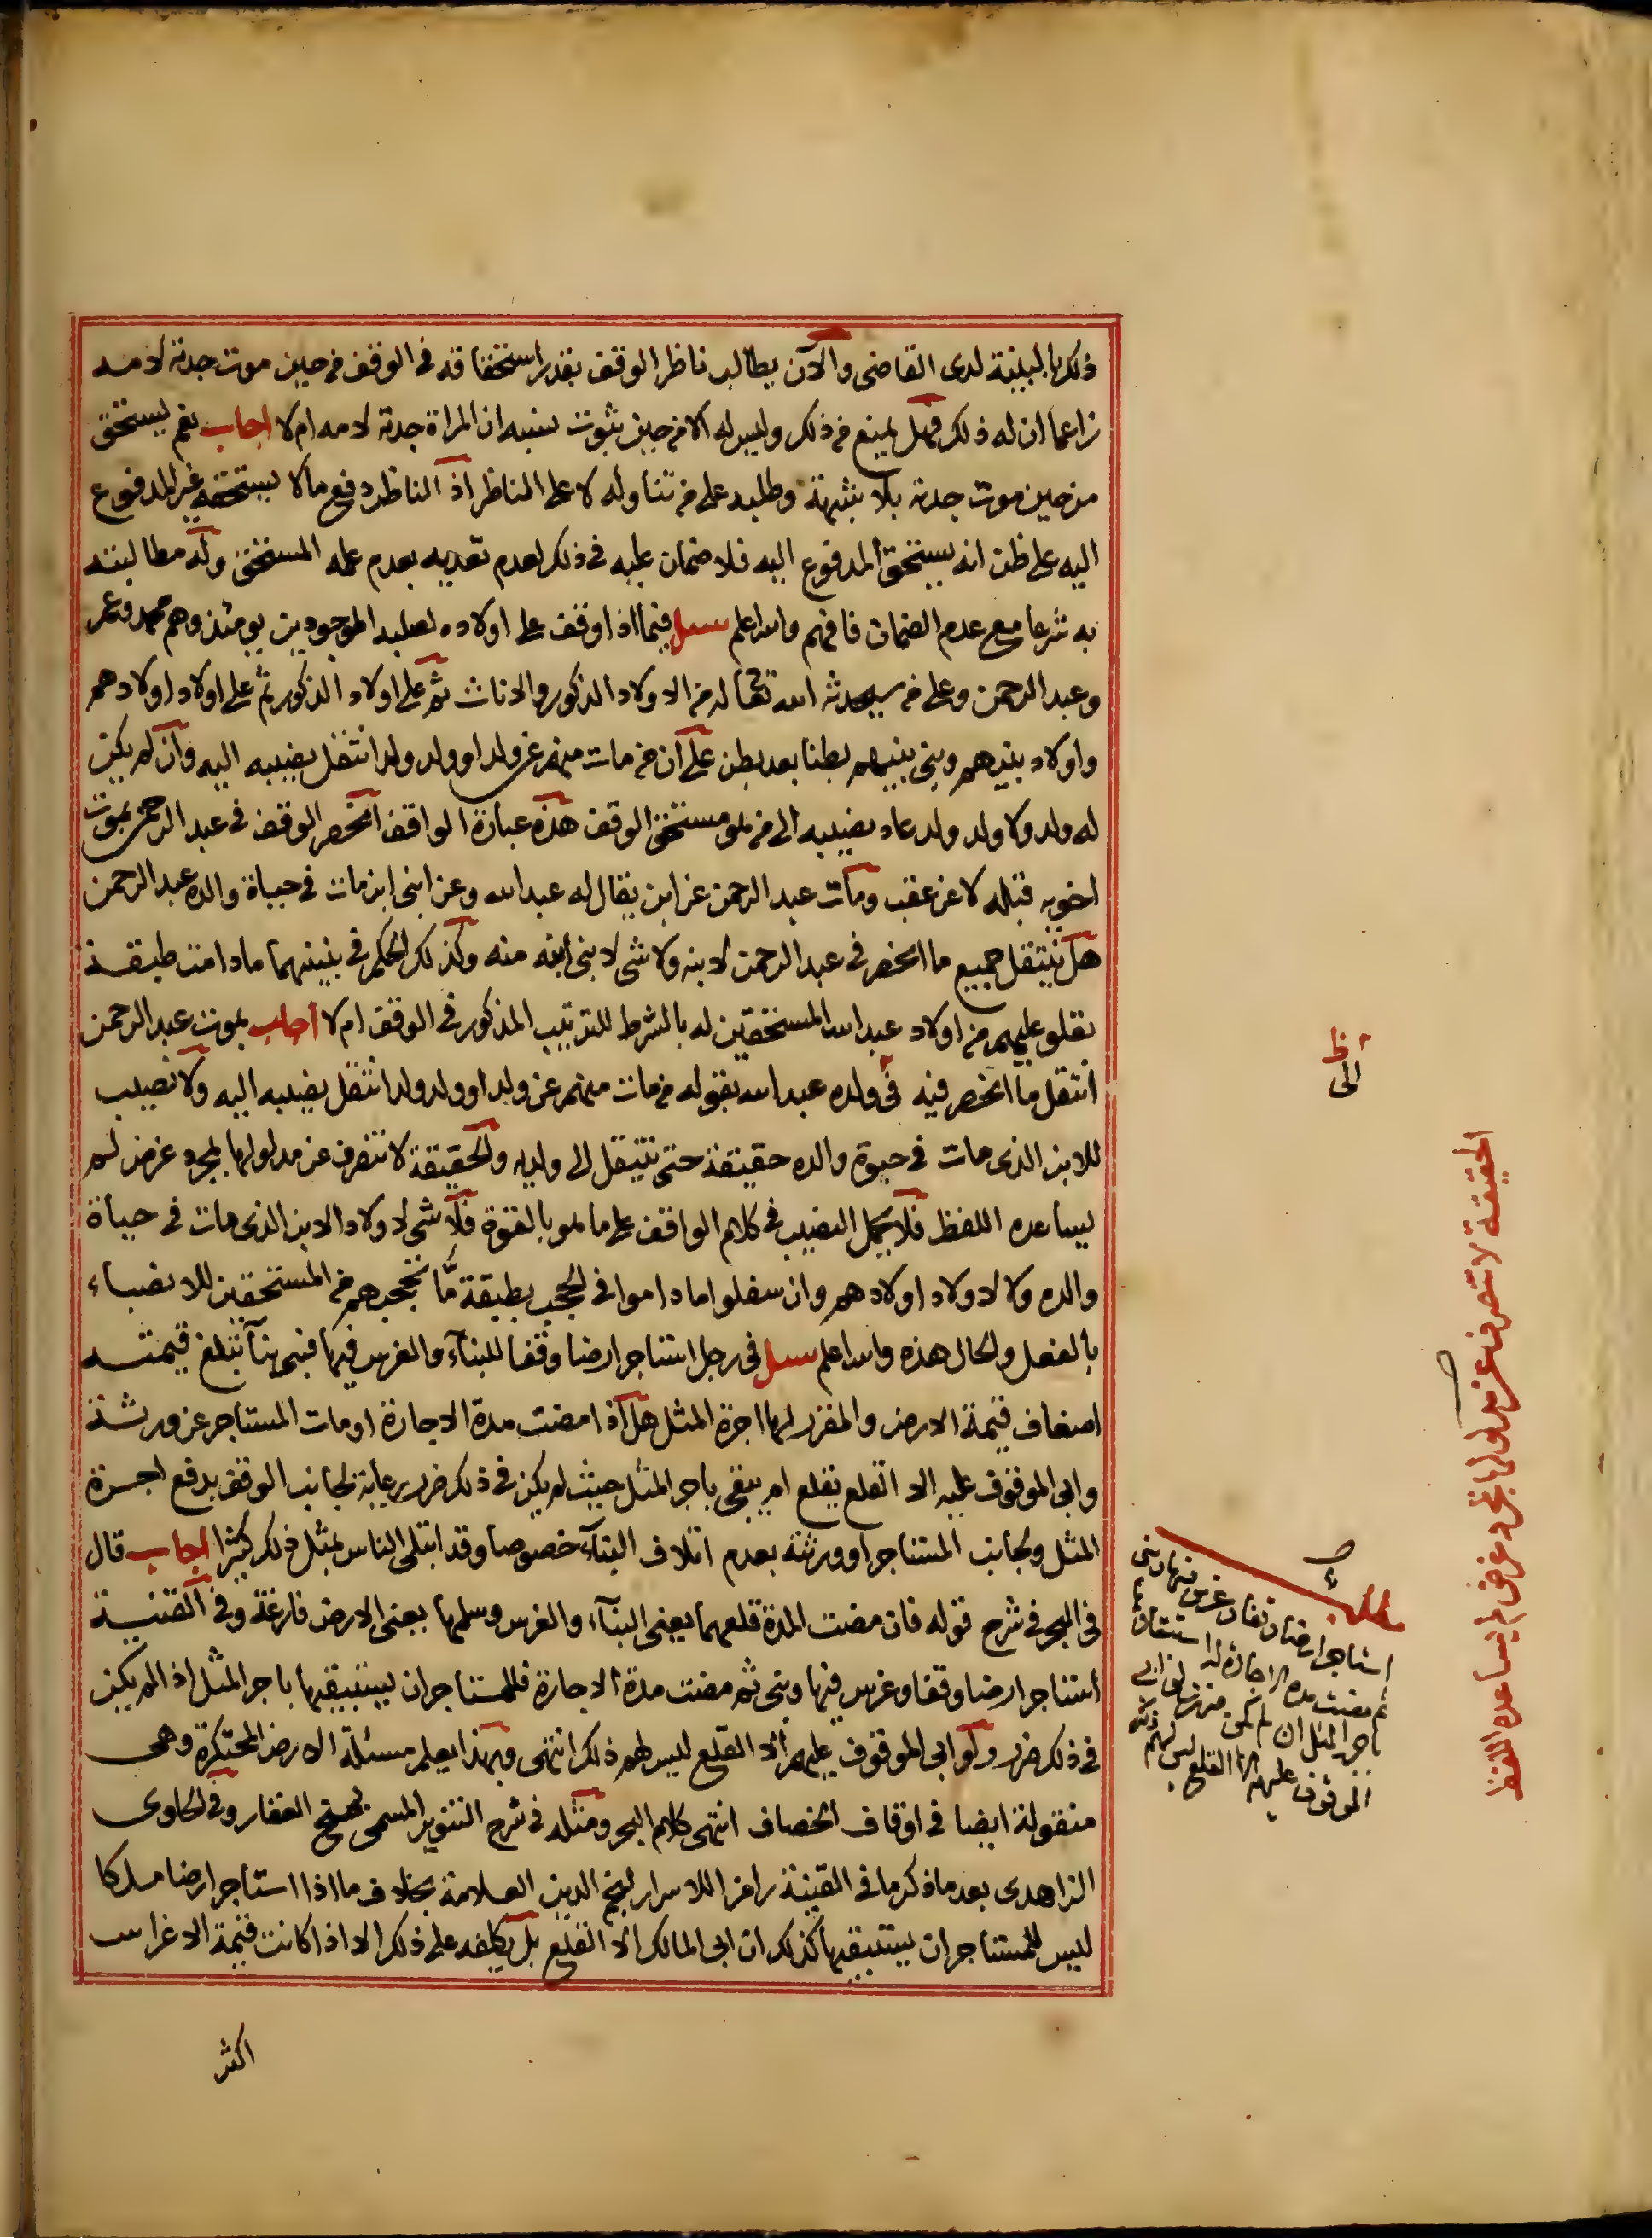 ذلك بالبينة لدى القاضى والآن يطالب ناظر الوقف بقدر استحقاقه فى الوقف من حين موت جدته لامه
زاعما ان له ذلك فهل يمنع من ذلك وليس له الا من حين ثبوت نسبه ان المراة جدته لامه ام لا اجاب نعم يستحق
من حين موت جدته بلا شبهة وطلبه على من تناوله لا على الناظر اذ الناظر دفع مالا يستحقه غير المدفوع
اليه على ظن انه يستحق المدفوع اليه فلا ضمان عليه فى ذلك لعدم تعديه بعدم علمه المستحق وله مطالبته
به شرعا مع عدم الضمان فافهم والله اعلم سئل فيما اذا وقف على اولاده لصلبه الموجودين يومئذ وهم محمد وعمر
وعبد الرحمن وعلى من سيحدثه الله تعالى له من الاولاد الذكور والاناث ثم على اولاد الذكور ثم على اولاد اولادهم
واولاد بنيهم وبنى بنيهم بطنا بعد بطن على ان من مات منهم عن ولد او ولد ولد انتقل نصيبه اليه وان لم يكن
له ولد ولا ولد ولد عاد نصيبه الى من هو مستحق الوقف هذه عبارة الواقف انحصر الوقف فى عبد الرحمن بموت
اخويه قبله لا عن عقب ومات عبد الرحمن عن ابن يقال له عبد الله وعن ابنى ابن مات فى حياة والده عبد الرحمن
هل ينتقل جميع ما انحصر فى عبد الرحمن لابنه ولا شى لابنى ابنه منه وكذلك الحكم فى بنيهما ما دامت طبقة
تعلو عليهم من اولاد عبد الله المستحقين له بالشرط للترتيب المذكور فى الوقف ام لا اجاب بموت عبد الرحمن
انتقل ما انحصر فيه فى ولده عبد الله بقوله من مات منهم عن ولد او ولد ولد انتقل نصيبه اليه ولا نصيب
للابن الذى مات فى حيوة والده حقيقة حتى ينتقل الى ولديه والحقيقة لا تنصرف عن مدلولها بمجرد غرض لم
يساعده اللفظ فلا يحمل النصيب فى كلام الواقف على ما هو بالقوة فلا شى لاولاد الابن الذى مات فى حياة
والده ولا لاولاد اولادهم وان سفلوا ما داموا فى الحجب بطبقة مّا تحجبهم من المستحقين للانصباء
بالفعل والحال هذه والله اعلم سئل فى رجل استاجر ارضا وقفا للبناء والغرس فيها فبنى بناء تبلغ قيمته
اضعاف قيمة الارض والمقرر لها اجرة المثل هل اذا مضت مدة الاجارة او مات المستاجر عن ورثة
وابى الموقوف عليه الا القلع يقلع ام يبقى باجر المثل حيث لم يكن فى ذلك ضرر رعاية لجانب الوقف بدفع اجرة
المثل ولجانب المستاجر او ورثته بعدم اتلاف البناء خصوصا وقد ابتلى الناس بمثل ذلك كثيرا اجاب قال
فى البحر فى شرح قوله فان مضت المدة قلعهما يعنى البناء والغرس وسلمها يعنى الارض فارغة وفى القنية
استاجر ارضا وقفا وغرس فيها وبنى ثم مضت مدة الاجارة فللمستاجر ان يستبقيها باجر المثل اذا لم يكن
فى ذلك ضرر ولو ابى الموقوف عليهم الا القلع ليس لهم ذلك انتهى وبهذا يعلم مسئلة الارض المحتكرة وهى
منقولة ايضا فى اوقاف الخصاف انتهى كلام البحر ومثله فى شرح التنوير المسمى بمنح الغفار وفى الحاوى
الزاهدى بعد ما ذكر ما فى القنية رامزا للاسرار لنجم الدين العلامة بخلاف ما اذا استاجر ارضا ملكا
ليس للمستاجر ان يستبقيها كذلك ان ابى المالك الا القلع بل يكلفه على ذلك الا اذا كانت قيمة الاغراس
اكثر
الحقيقة لا تنصرف عن مدلولها بمجرد غرض لم يساعده اللفظ
مطلب
استاجر ارضا وقفا وغرس فيها وبنى
ثم مضت مدة الاجارة له استبقاؤها
باجر المثل ان لم يكن ضرر ولو ابى
الموقوف عليهم الا القلع ليس لهم ذلك